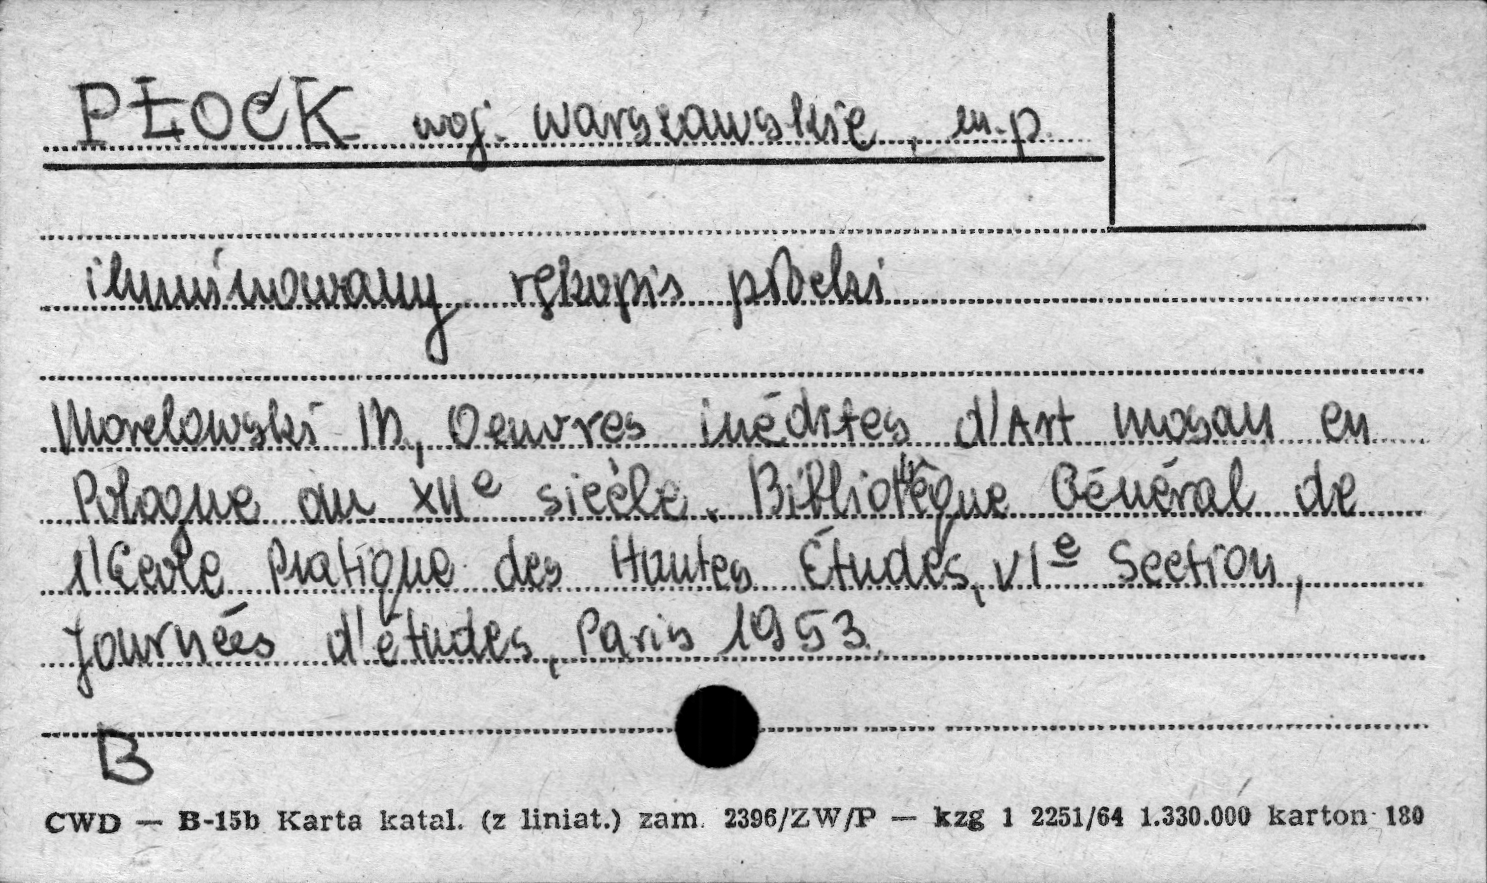 PŁOCK woj. warszawskie, m.p.
iluminowany rękopis płocki
Morelowski M., Oeuvres inédites d'Art mosan en
Pologne au XIIe sieèle. Bibliotèque Général de
l'Ecole Pratique des Hautes Études, VIe Section,
Journées d'études, Paris 1953.
B
CWD — B-15b Karta katal. (z liniat.) zam. 2396/ZW/P — kzg 1 2251/64 1.330.000 karton 180